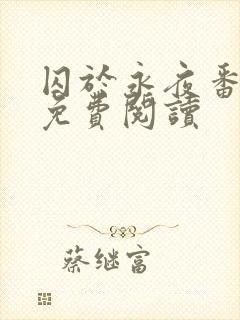 囚於永夜番
免費閱讀
蔡继富